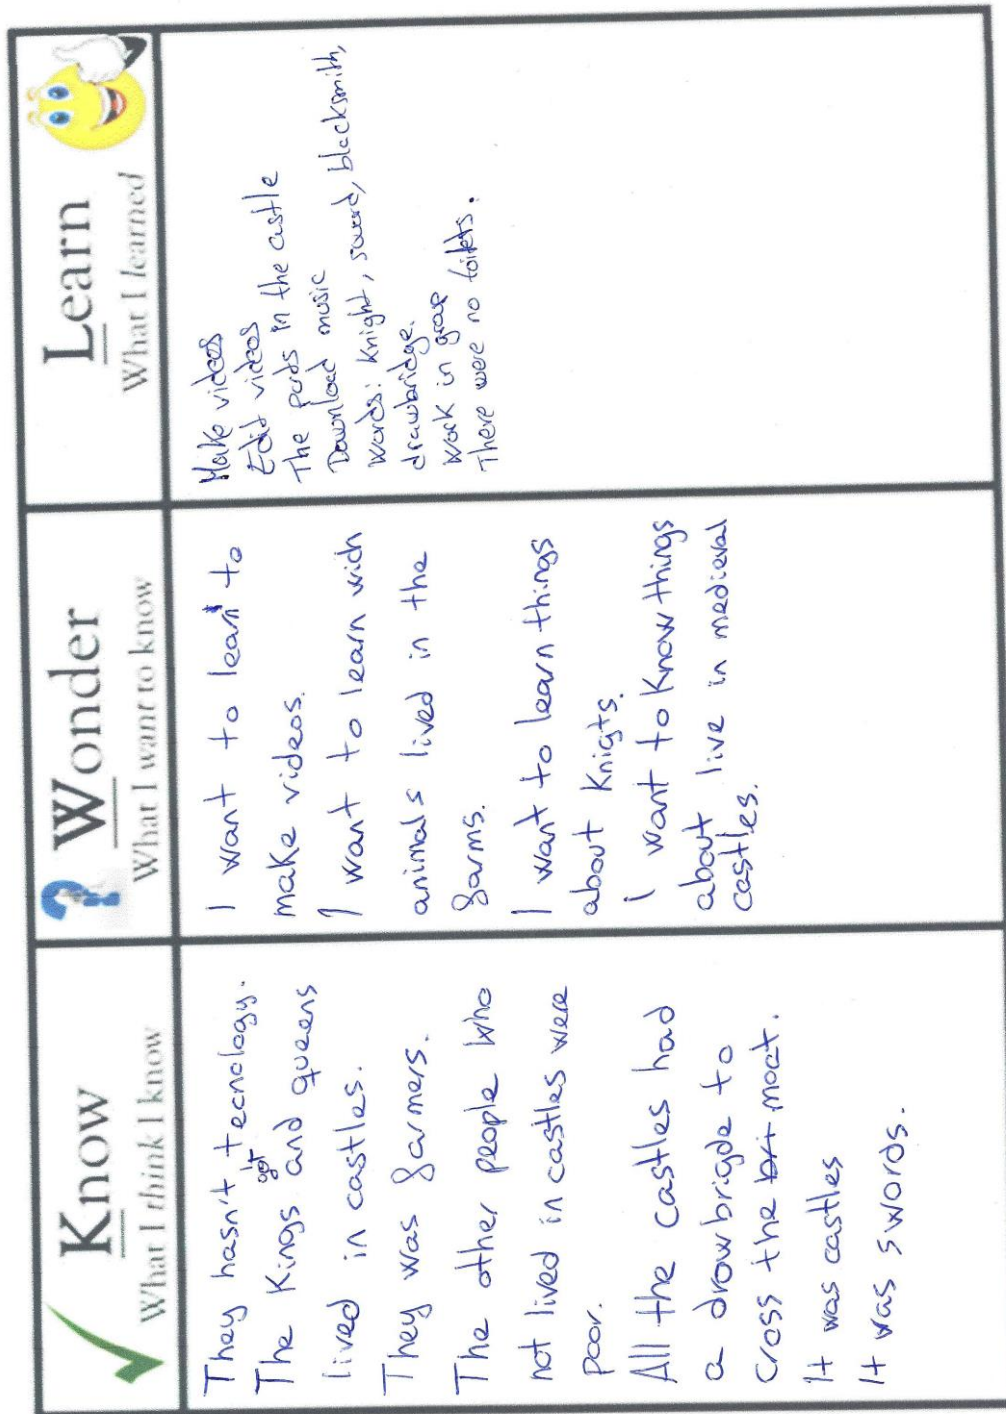 Know
What I think I know
They hasn't tecnology.
got
The Kings and queens
lived in castles.
They was farmers.
The other people who
not lived in castles were
poor.
All the castles had
a drowbrigde to
cross the bri moat.
It was castles
It was swords.
? Wonder
What I want to know
I want to learn to
make videos.
I want to learn wich
animals lived in the
farms.
I want to learn things
about Knigts.
I want to Know things
about live in medieval
castles.
Learn
What I learned
Make videos
Edit videos
The parts in the castle
Download music
Words: Knight, sword, blacksmith,
drawbridge.
Work in group
There were no toilets.